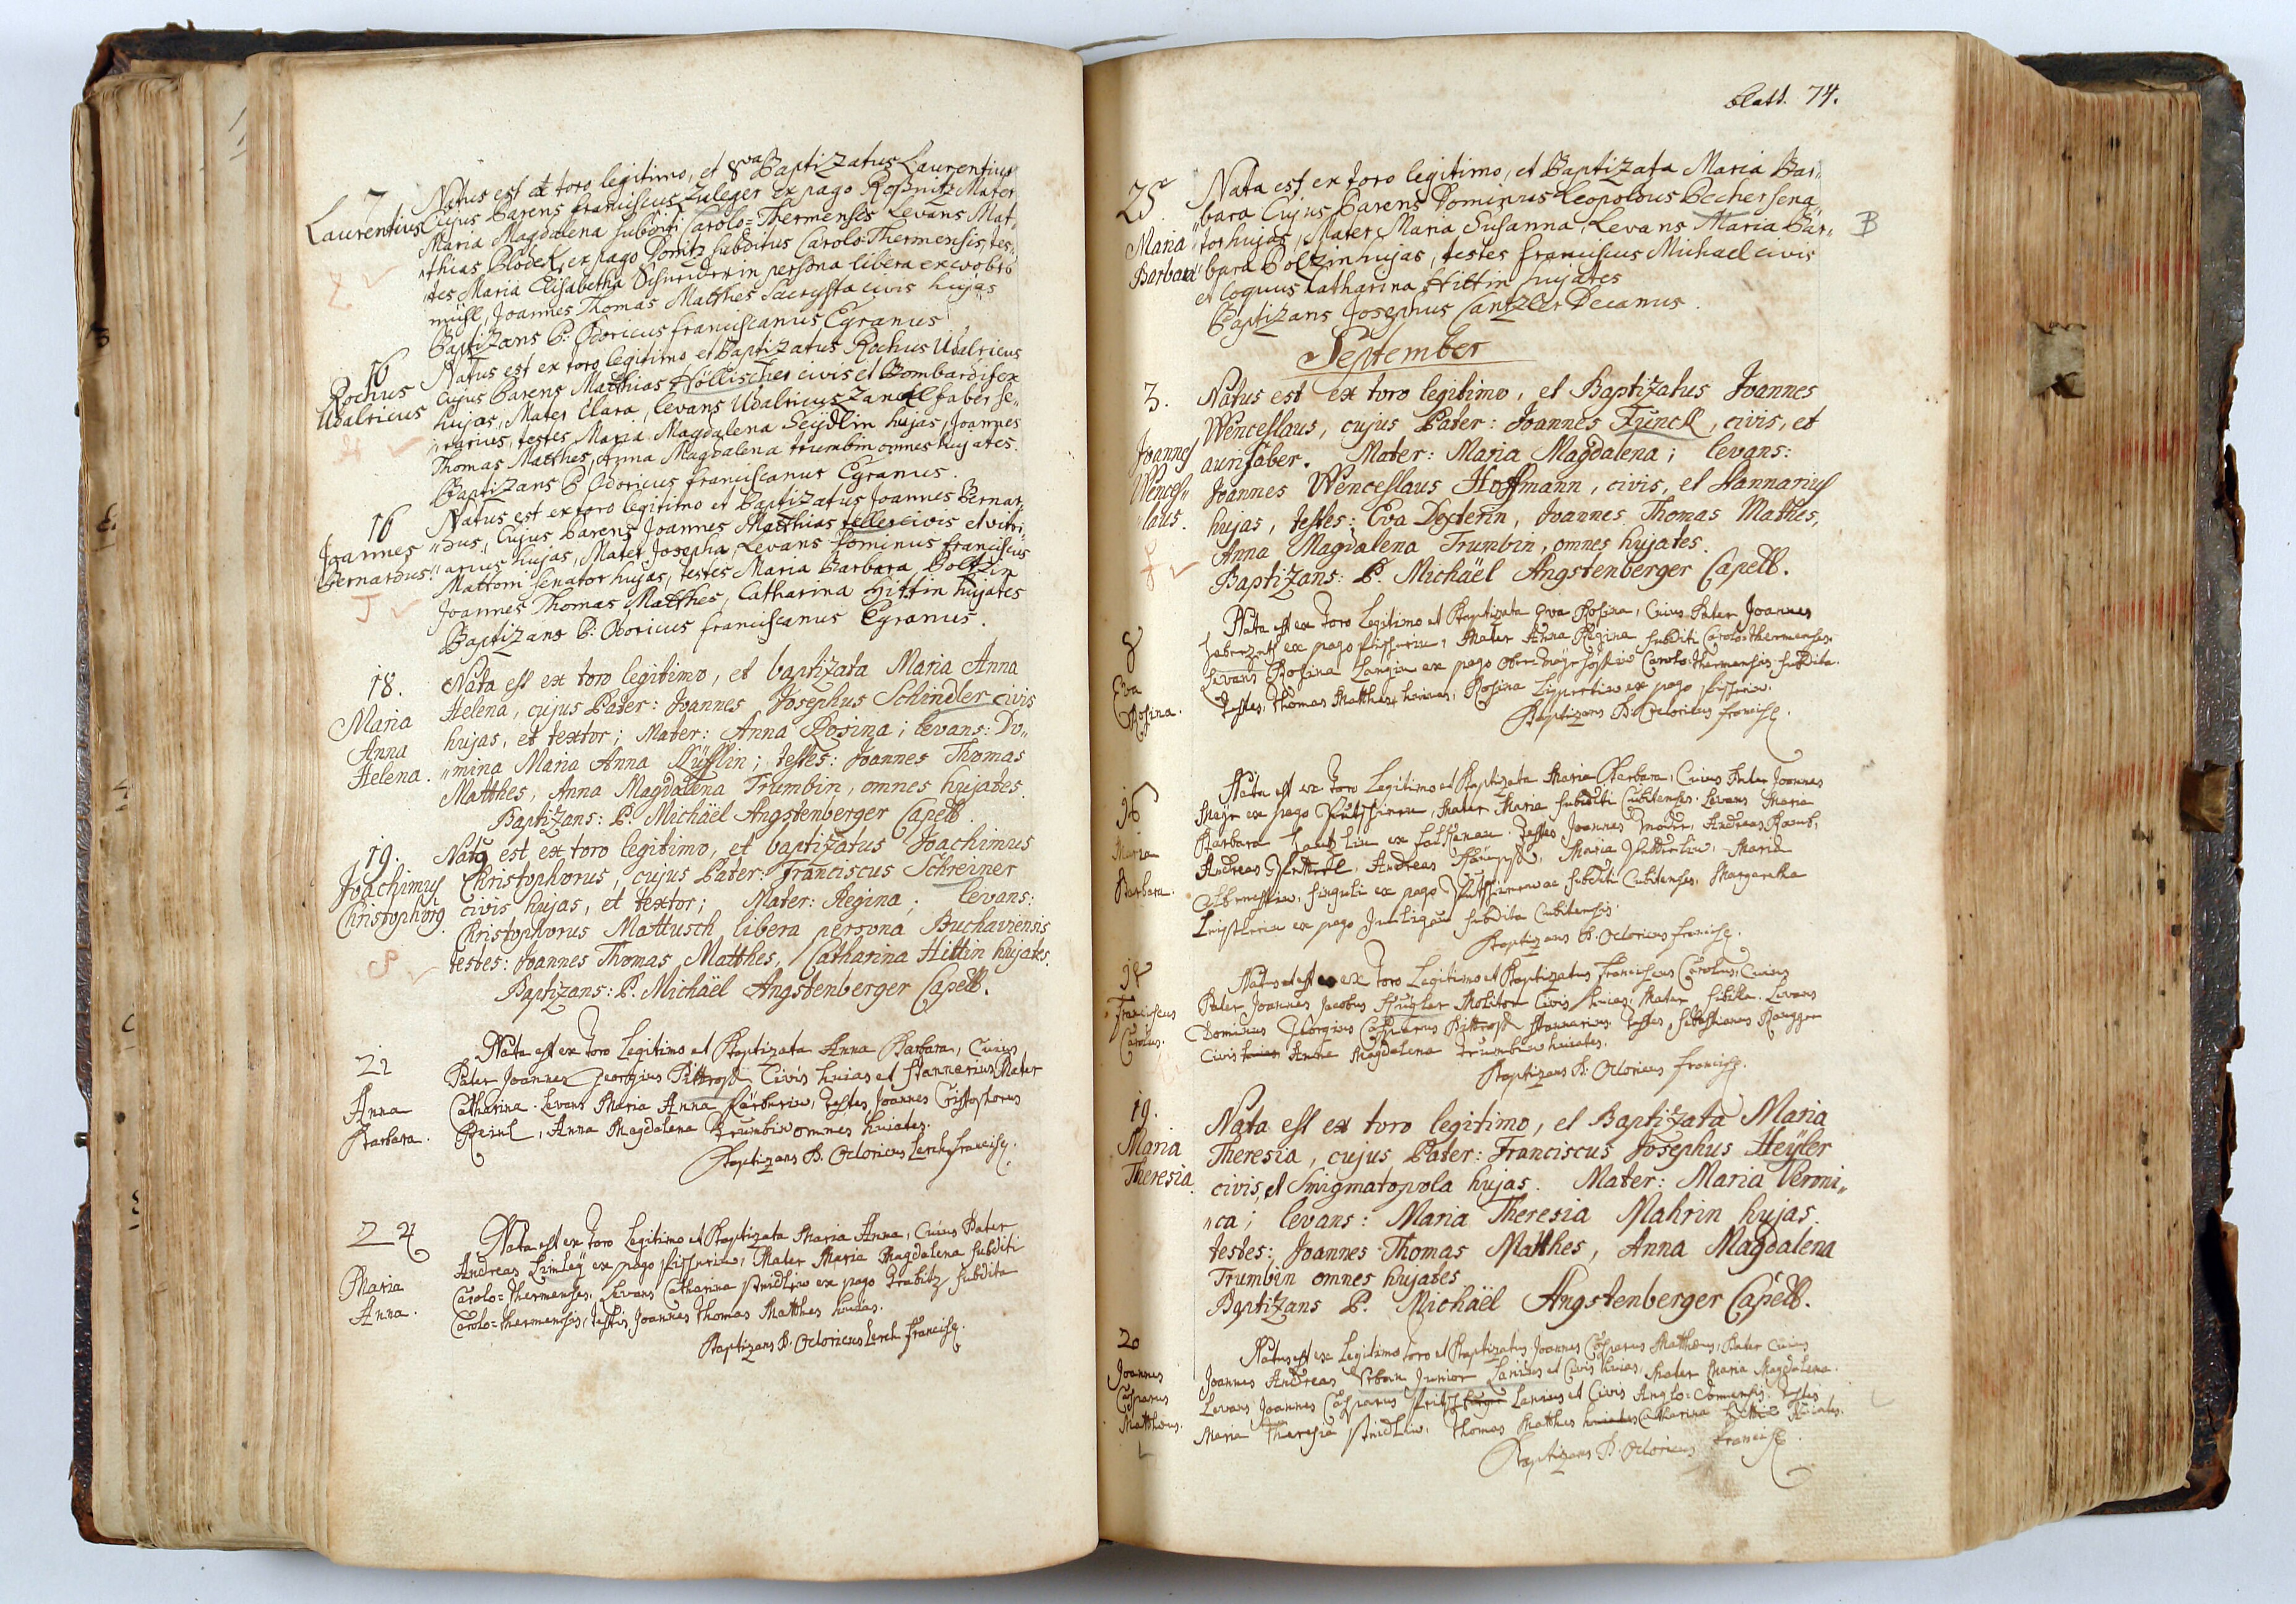 7
Laurentius
Natus est ex toro legitimo, et 8va Baptizatus Laurentius
Cujus Parens Franciscus Zuleger ex pago Roßnitz Mater
Maria Magdalena subditi Carolo-Thermenses Levans Mat-
"thias Blodek ex pago Donitz subditus Carolo-Thermensis, tes-
"tes Maria Elisabetha Schneiderin persona libera ex
mühl, Joannes Thomas Matthes Sacrysta civis hujas
Baptizans P: Odoricus franciscanus Egranus
16
Rochus
Udalricus
Natus est ex toro legitimo et Baptizatus Rochus Udalricus
Cujus Parens Matthias Höllischer civis et Bombardifex
hujas, Mater Clara, levans Udalricus Zanckl faber se-
"rarius, testes Maria Magdalena Seydlin hujas, Joannes
Thomas Matthes, Anna Magdalena trumbin omnes hujates.
Baptizans P Odoricus franciscanus Egranus.
16
Joannes
Bernardus
Natus est ex toro legitimo et Baptizatus Joannes Bernar-
"dus, Cujus Parens Joannes Matthias teller civis et vitri-
"arius hujas, Mater Josepha, Levans Dominus franciscus
Mattoni senator hujas, testes Maria Barbara Poltzin
Joannes Thomas Matthes, Catharina Hittin hujates
Baptizans P: Odoricus franciscanus Egranus.
18.
Maria
Anna
Helena.
Nata est ex toro legitimo, et baptizata Maria Anna
Helena, cujus Pater: Joannes Josephus Schindler civis
hujas, et textor; Mater: Anna Rosina; levans: Do-
"mina Maria Anna; testes: Joannes Thomas
Matthes, Anna Magdalena Trumbin, omnes hujates.
Baptizans: P. Michäel Angstenberger Capell.
19.
Joachimus
Christophorg
Natg est ex toro legitimo, et baptizatus Joachimus
Christophorus, cujus Pater: Franciscus Schreiner
civis hujas, et textor; Mater: Regina; levans:
Christophorus Mattusch libera persona Buchaviensis
testes: Joannes Thomas Matthes, Catharina Hittin hujates.
Baptizans: P. Michäel Angstenberger Capell.
22
Anna
Barbara.
Nata est ex toro Legitimo et Baptizata Anna Barbara, Cuius
Pater Joannes Georgius Pittroff Civis huias et stannarius, Mater
Catharina. Levans Maria Anna, Testes, Joannes
, Anna Magdalena Trumbin omnes huiates.
Baptizans P. Odoricus Lerch francisc.
24
Maria
Anna.
Nata est ex toro Legitimo et Baptizata Maria Anna, Cuius Pater
Andreas ex pago, Mater Maria Magdalena subditi
Carolo-thermenses. Levans Catharina ex pago subdita
Carolo-thermensis, Testis Joannes Thomas Matthes huias.
Baptizans P. Odoricus Lerch francisc.
blatt. 74.
25.
Maria
Barbara
Nata est ex toro legitimo, et Baptizata Maria Bar-
bara Cujus Parens Dominus Leopoldus Becher sena-
"tor hujas, Mater Maria Susanna Levans Maria Bar-
"bara Poltzin hujas, testes franciscus Michael civis
et coquus Catharina Hittin hujates
Baptizans Josephus Cantzler Decanus.
B
September
3.
Joannes
Wences-
laus.
Natus est ex toro legitimo, et Baptizatus Joannes
Wenceslaus, cujus Pater: Joannes Funck, civis, et
aurifaber. Mater: Maria Magdalena; levans:
Joannes Wenceslaus Hoffmann, civis, et stannarius
hujas, testes: Eva Dexlerin, Joannes Thomas Mathes,
Anna Magdalena Trumbin, omnes hujates.
Baptizans: P. Michäel Angstenberger Capell.
8
Eva
Rosina.
Nata est ex toro Legitimo et Baptizata Eva Rosina, Cuius Pater Joannes
ex pago, Mater Anna Regina subditi Carolo-thermenses
Levans Rosina Langin ex pago Carolo-thermensis subdita.
Testes, Thomas Matthes huias, Rosina ex pago
Baptizans P. Odoricus francisc.
16
Maria
Barbara.
Nata est ex toro Legitimo et Baptizata Maria Barbara, Cuius Pater Joannes
ex pago, Mater Maria subditi Cubitenses. Levans Maria
Barbara ex. Testes Joannes, Andreas
Andreas, Andreas, Maria, Maria
singuli ex pago subditi Cubitenses, Margaretha
ex pago subdita Cubitensis.
Baptizans P. Odoricus francisc.
18
Franciscus
Carolus.
Natus est ex toro Legitimo et Baptizatus Franciscus Carolus, Cuius
Pater Joannes Jacobus Molitor Civis huias, Mater. Levans
Dominus Georgius Casparus Pittroff stannarius. Testes, Sebastianus
Civis Anna Magdalena Trumbin huiates.
Baptizans P. Odoricus francisc.
19.
Maria
Theresia.
Nata est ex toro legitimo, et Baptizata Maria
Theresia, cujus Pater: Franciscus Josephus Heÿler
civis, et Smigmatopola hujas. Mater: Maria Veroni-
"ca; levans: Maria Theresia Mahrin hujas.
testes: Joannes Thomas Matthes, Anna Magdalena
Trumbin omnes hujates
Baptizans P. Michäel Angstenberger Capell.
20
Joannes
Casparus
Matthæus.
Natus est ex Legitimo toro et Baptizatus Joannes Casparus Matthæus, Pater Cuius
Joannes Andreas Junior Lanius et Civis huias, Mater Maria Magdalena.
Levans Joannes Casparus Lanius et Civis. Testes
Maria Theresia, Thomas Matthes Catharina Hittin huiates.
Baptizans P. Odoricus francisc.